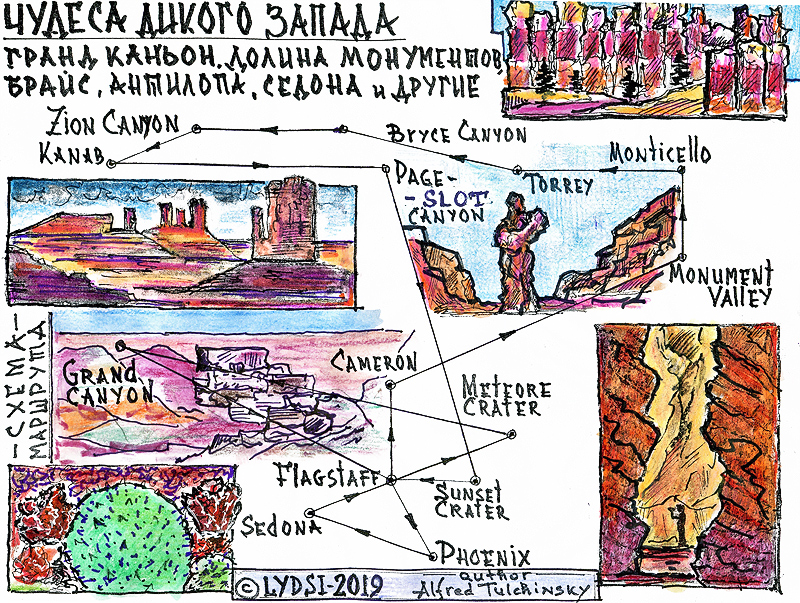 ЧУДЕСА ДИКОГО ЗАПАДА
ГРАНД КАНЬОН, ДОЛИНА МОНУМЕНТОВ,
БРАЙС, АНТИЛОПА, СЕДОНА И ДРУГИЕ
ZION CANYON
BRYCE CANYON
MONTICELLO
KANAB
PAGE-
-SLOT
CANYON
TORREY
MONUMENT
VALLEY
-СХЕМА-
МАРШРУТА
GRAND
CANYON
CAMERON
METEORE
CRATER
FLAGSTAFF
SUNSET
CRATER
SEDONA
PHOENIX
© LYDSI-2019
author
Alfred Tulchinsky